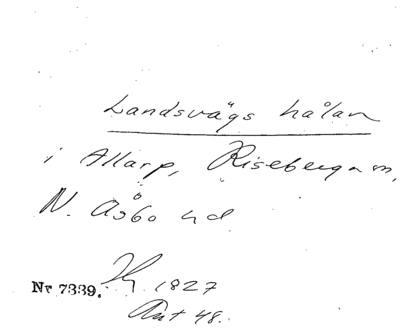 Landsvägs hålan
i Allarp, Riseberga sn,
N. Åsbo hd
Nr 7339. 1827
Ant 48.